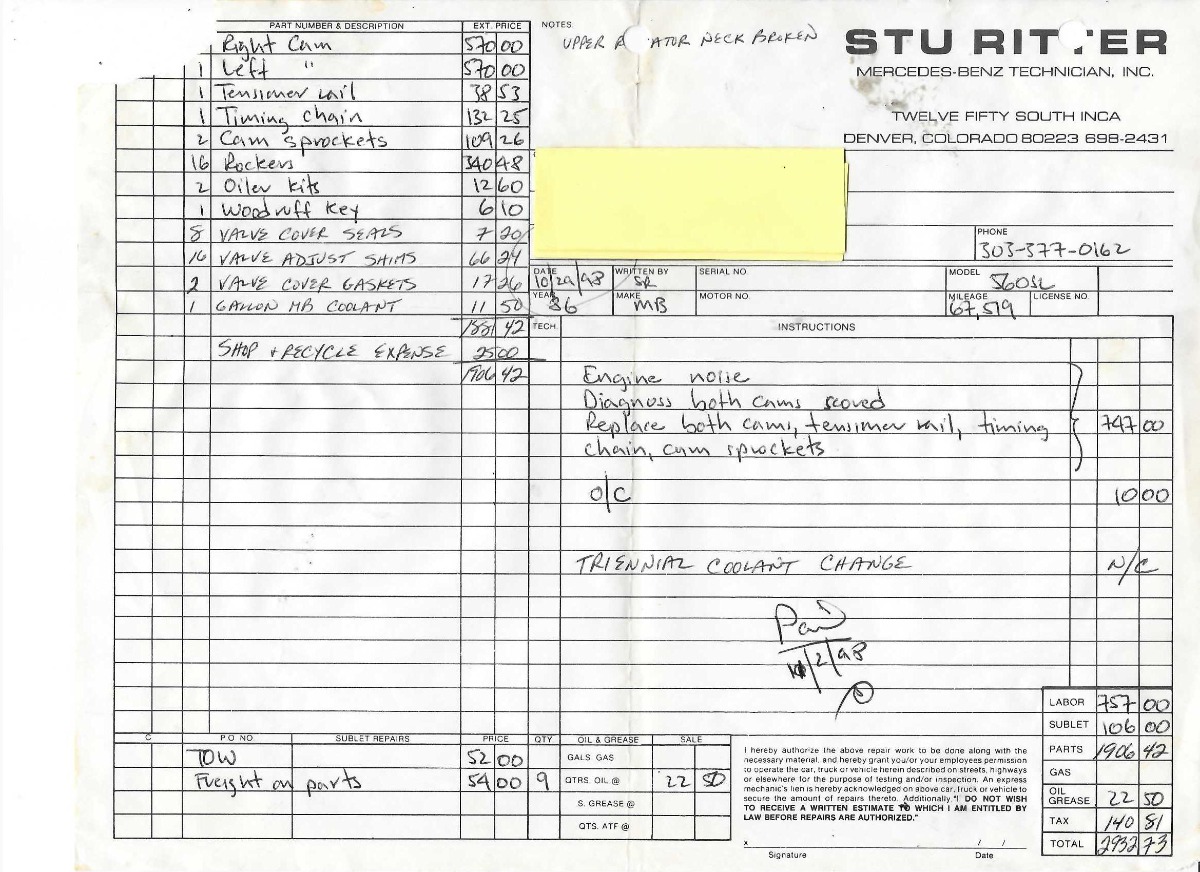 PART NUMBER & DESCRIPTION EXT. PRICE
Right Cam 570 00
1 Left " 570 00
1 Tensioner rail 38 53
1 Timing chain 132 25
2 Cam sprockets 109 26
16 Rockers 340 48
2 Oiler kits 12 60
1 Woodruff Key 6 10
8 VALVE COVER SEALS 7 20
16 VALVE ADJUST SHIMS 66 24
2 VALVE COVER GASKETS 17 26
1 GALLON MB COOLANT 11 50
1881 42
SHOP + RECYCLE EXPENSE 25 00
1906 42
NOTES:
UPPER R ATOR NECK BROKEN
STU RITTER
MERCEDES-BENZ TECHNICIAN, INC.
TWELVE FIFTY SOUTH INCA
DENVER, COLORADO 80223 698-2431
PHONE
303-377-0162
DATE 10/29/98 WRITTEN BY SR SERIAL NO. MODEL 560SL
YEAR 86 MAKE MB MOTOR NO. MILEAGE 67,519 LICENSE NO.
TECH. INSTRUCTIONS
Engine noise
Diagnoss both cams scored
Replace both cams, tensioner rail, timing 747 00
chain, cam sprockets
O/C 10 00
TRIENNIAL COOLANT CHANGE N/C
Paid
/2/98
LABOR 757 00
SUBLET 106 00
PARTS 1906 42
GAS
OIL GREASE 22 50
TAX 140 81
TOTAL 2932 73
C P.O. NO. SUBLET REPAIRS PRICE QTY OIL & GREASE SALE
TOW 52 00 GALS. GAS
Freight on parts 54 00 9 QTRS. OIL @ 22 50
S. GREASE @
QTS. ATF @
I hereby authorize the above repair work to be done along with the
necessary material, and hereby grant you/or your employees permission
to operate the car, truck or vehicle herein described on streets, highways
or elsewhere for the purpose of testing and/or inspection. An express
mechanic's lien is hereby acknowledged on above car, truck or vehicle to
secure the amount of repairs thereto. Additionally "I DO NOT WISH
TO RECEIVE A WRITTEN ESTIMATE TO WHICH I AM ENTITLED BY
LAW BEFORE REPAIRS ARE AUTHORIZED."
x / /
Signature Date